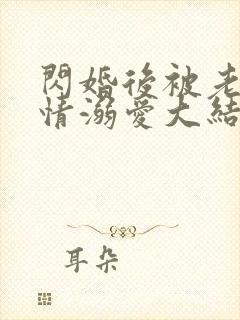 閃婚後被老
情溺愛大結
耳朵